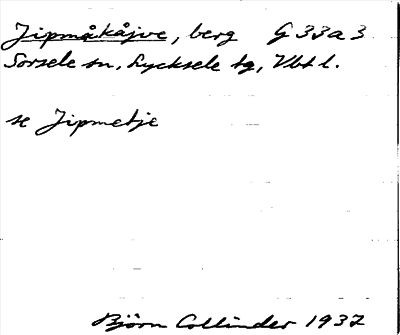 Jipmåkåjve, berg G 33a3
Sorsele sn, Lycksele tg, Vbt l.
se Jipmetje
Björn Collinder 1937